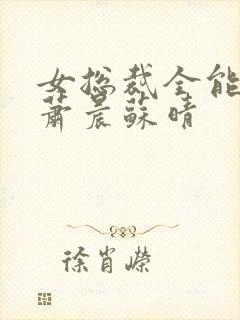 女总裁全能
萧晨苏晴
徐肖嵘